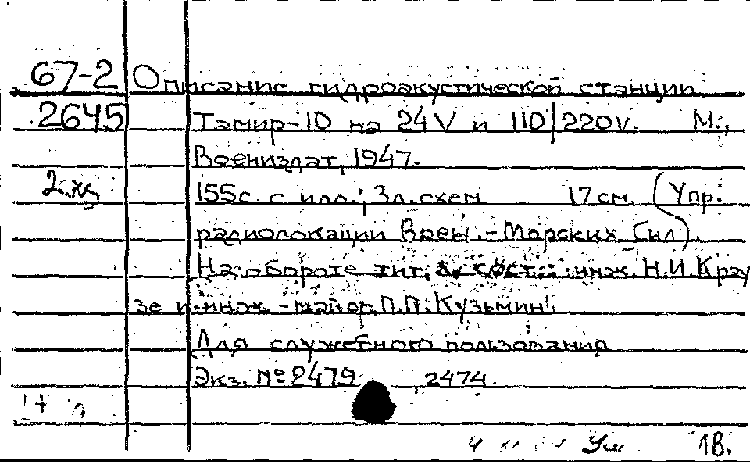 67-2 Описание гидроакустической станции
2645 Тамир-10 на 24V и 110/220V. М.,
Воениздат, 1947.
2 экз 155с. с илл.; 3л. схем 17 см. (Упр.
радиолокации Воен.-Морских Сил).
На обороте тит. л. сост.: инж. Н.И. Крау
зе и инж.-майор П.П. Кузьмин.
Для служебного пользования
Экз. № 2479 , 2474
1В.